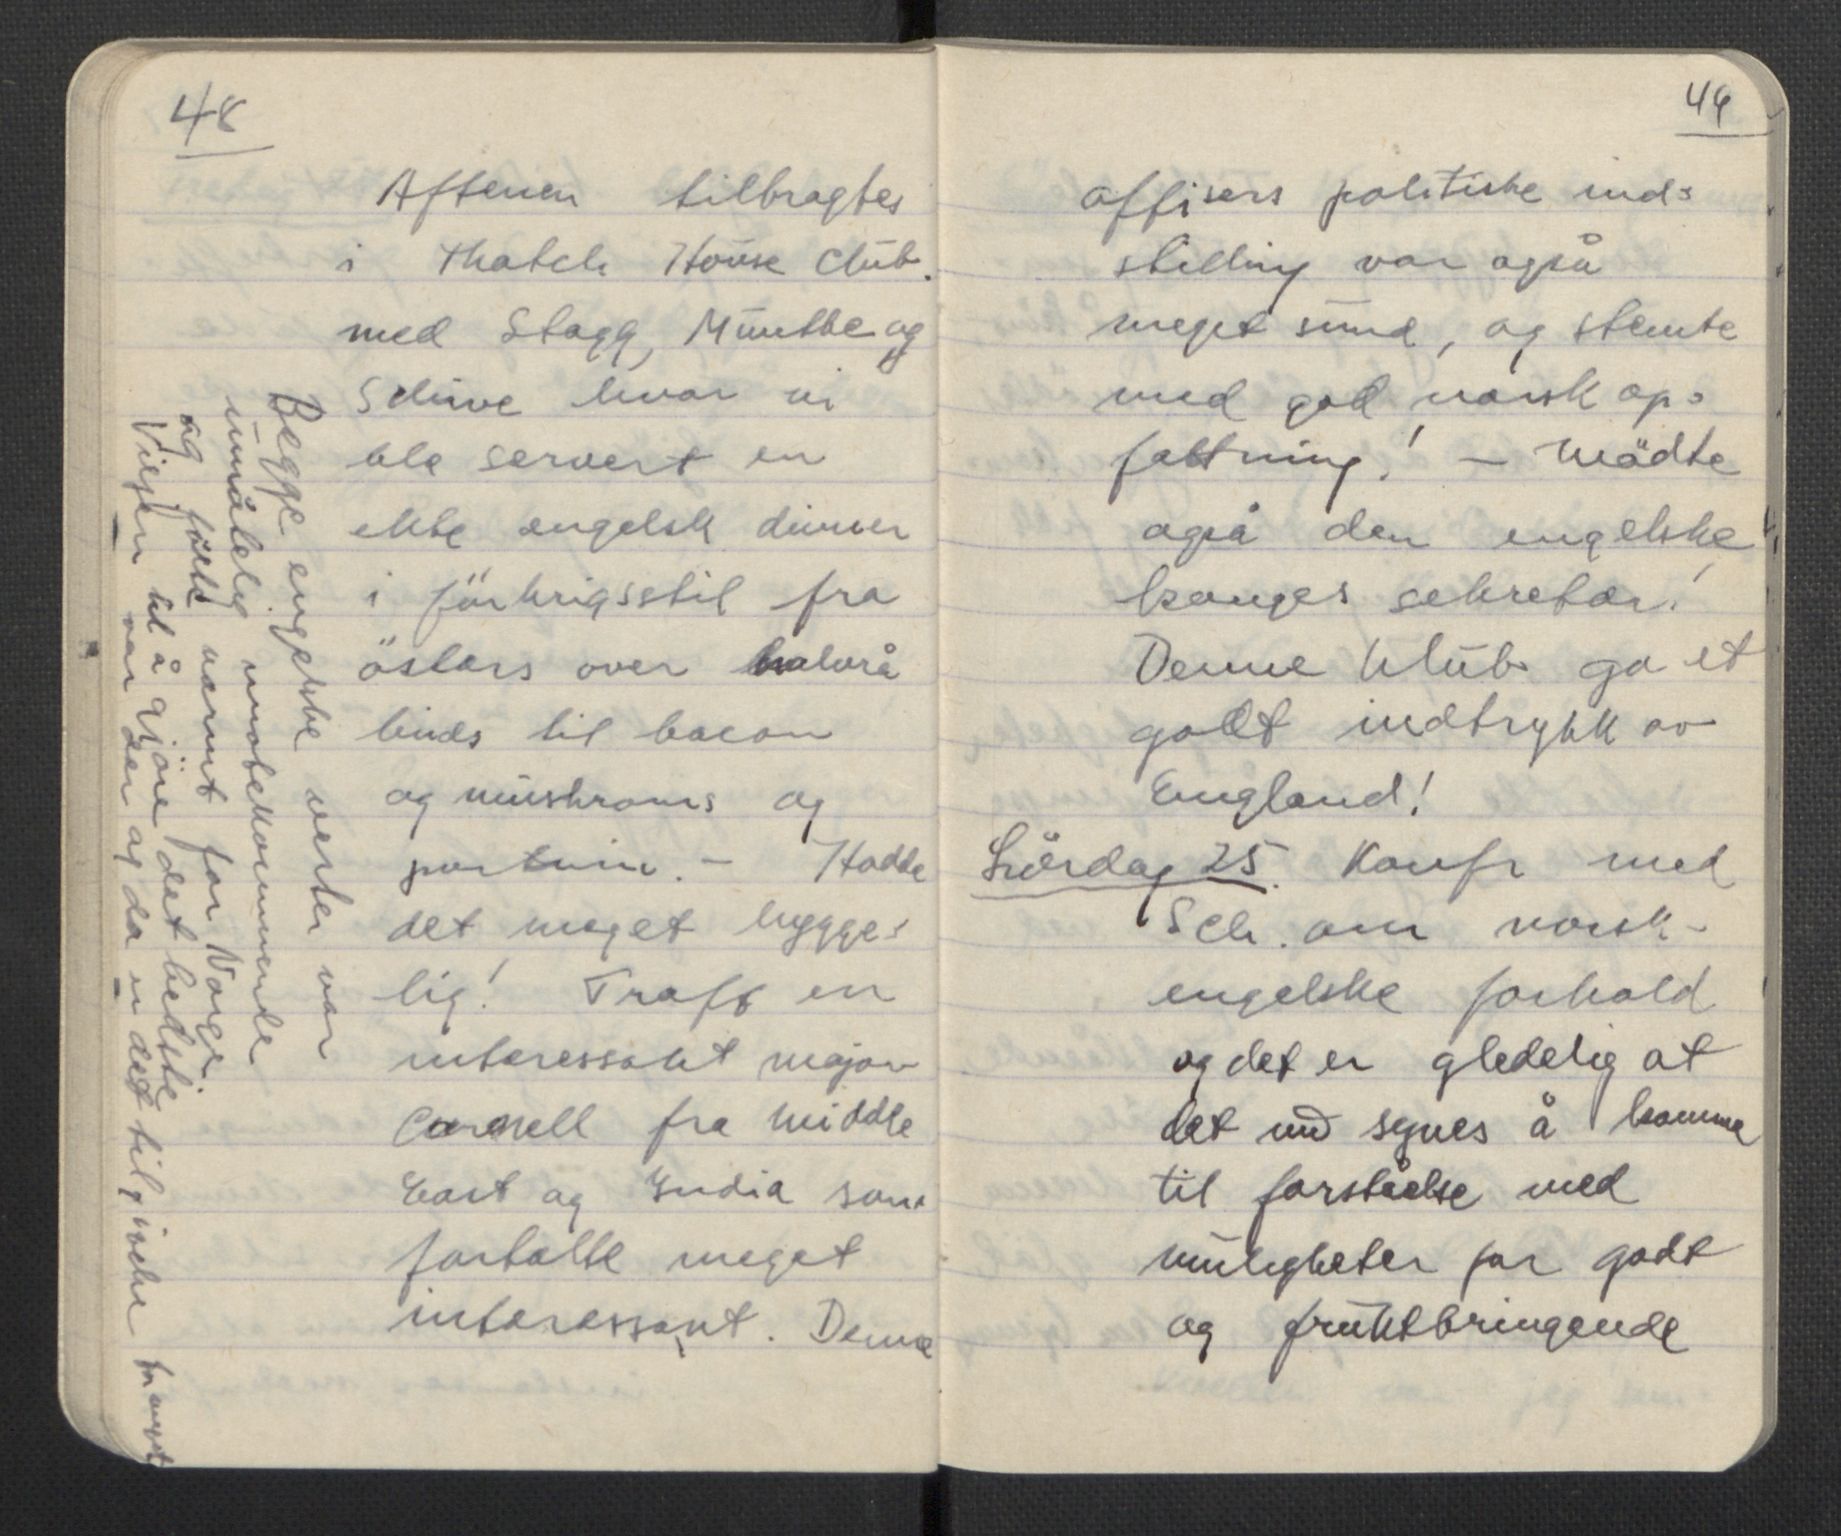 48
Aftenen tilbragtes
i Thatch House Club.
med Stagg, Munthe og
Schive hvor vi
ble servert en
ekte engelsk dinner
i förkrigsstil fra
östers over halvrå
biuds til bacon
og mushroms og
portvin. – Hadde
det meget hygge=
lig! Traff en
interessant major
Cornell fra Middle
East og India som
fortalte meget
interessant. Denne
Begge engelske verter var
umåtelig imøtekommende
og følte varmt for Norge.
Viljen til å gjöre det bedste
var der og da er det tilgivelse
49
offisers politiske ind=
stilling var også
meget sund, og stemte
med god norsk op=
fattning! – Mödte
også den engelske
konges sekretær!
Denne klub ga et
godt indtrykk av
England!
Lördag 25. Konfr med
Sch. om norsk-
engelske forhold
og det er gledelig at
det nu synes å komme
til forståelse med
muligheter for godt
og fruktbringende